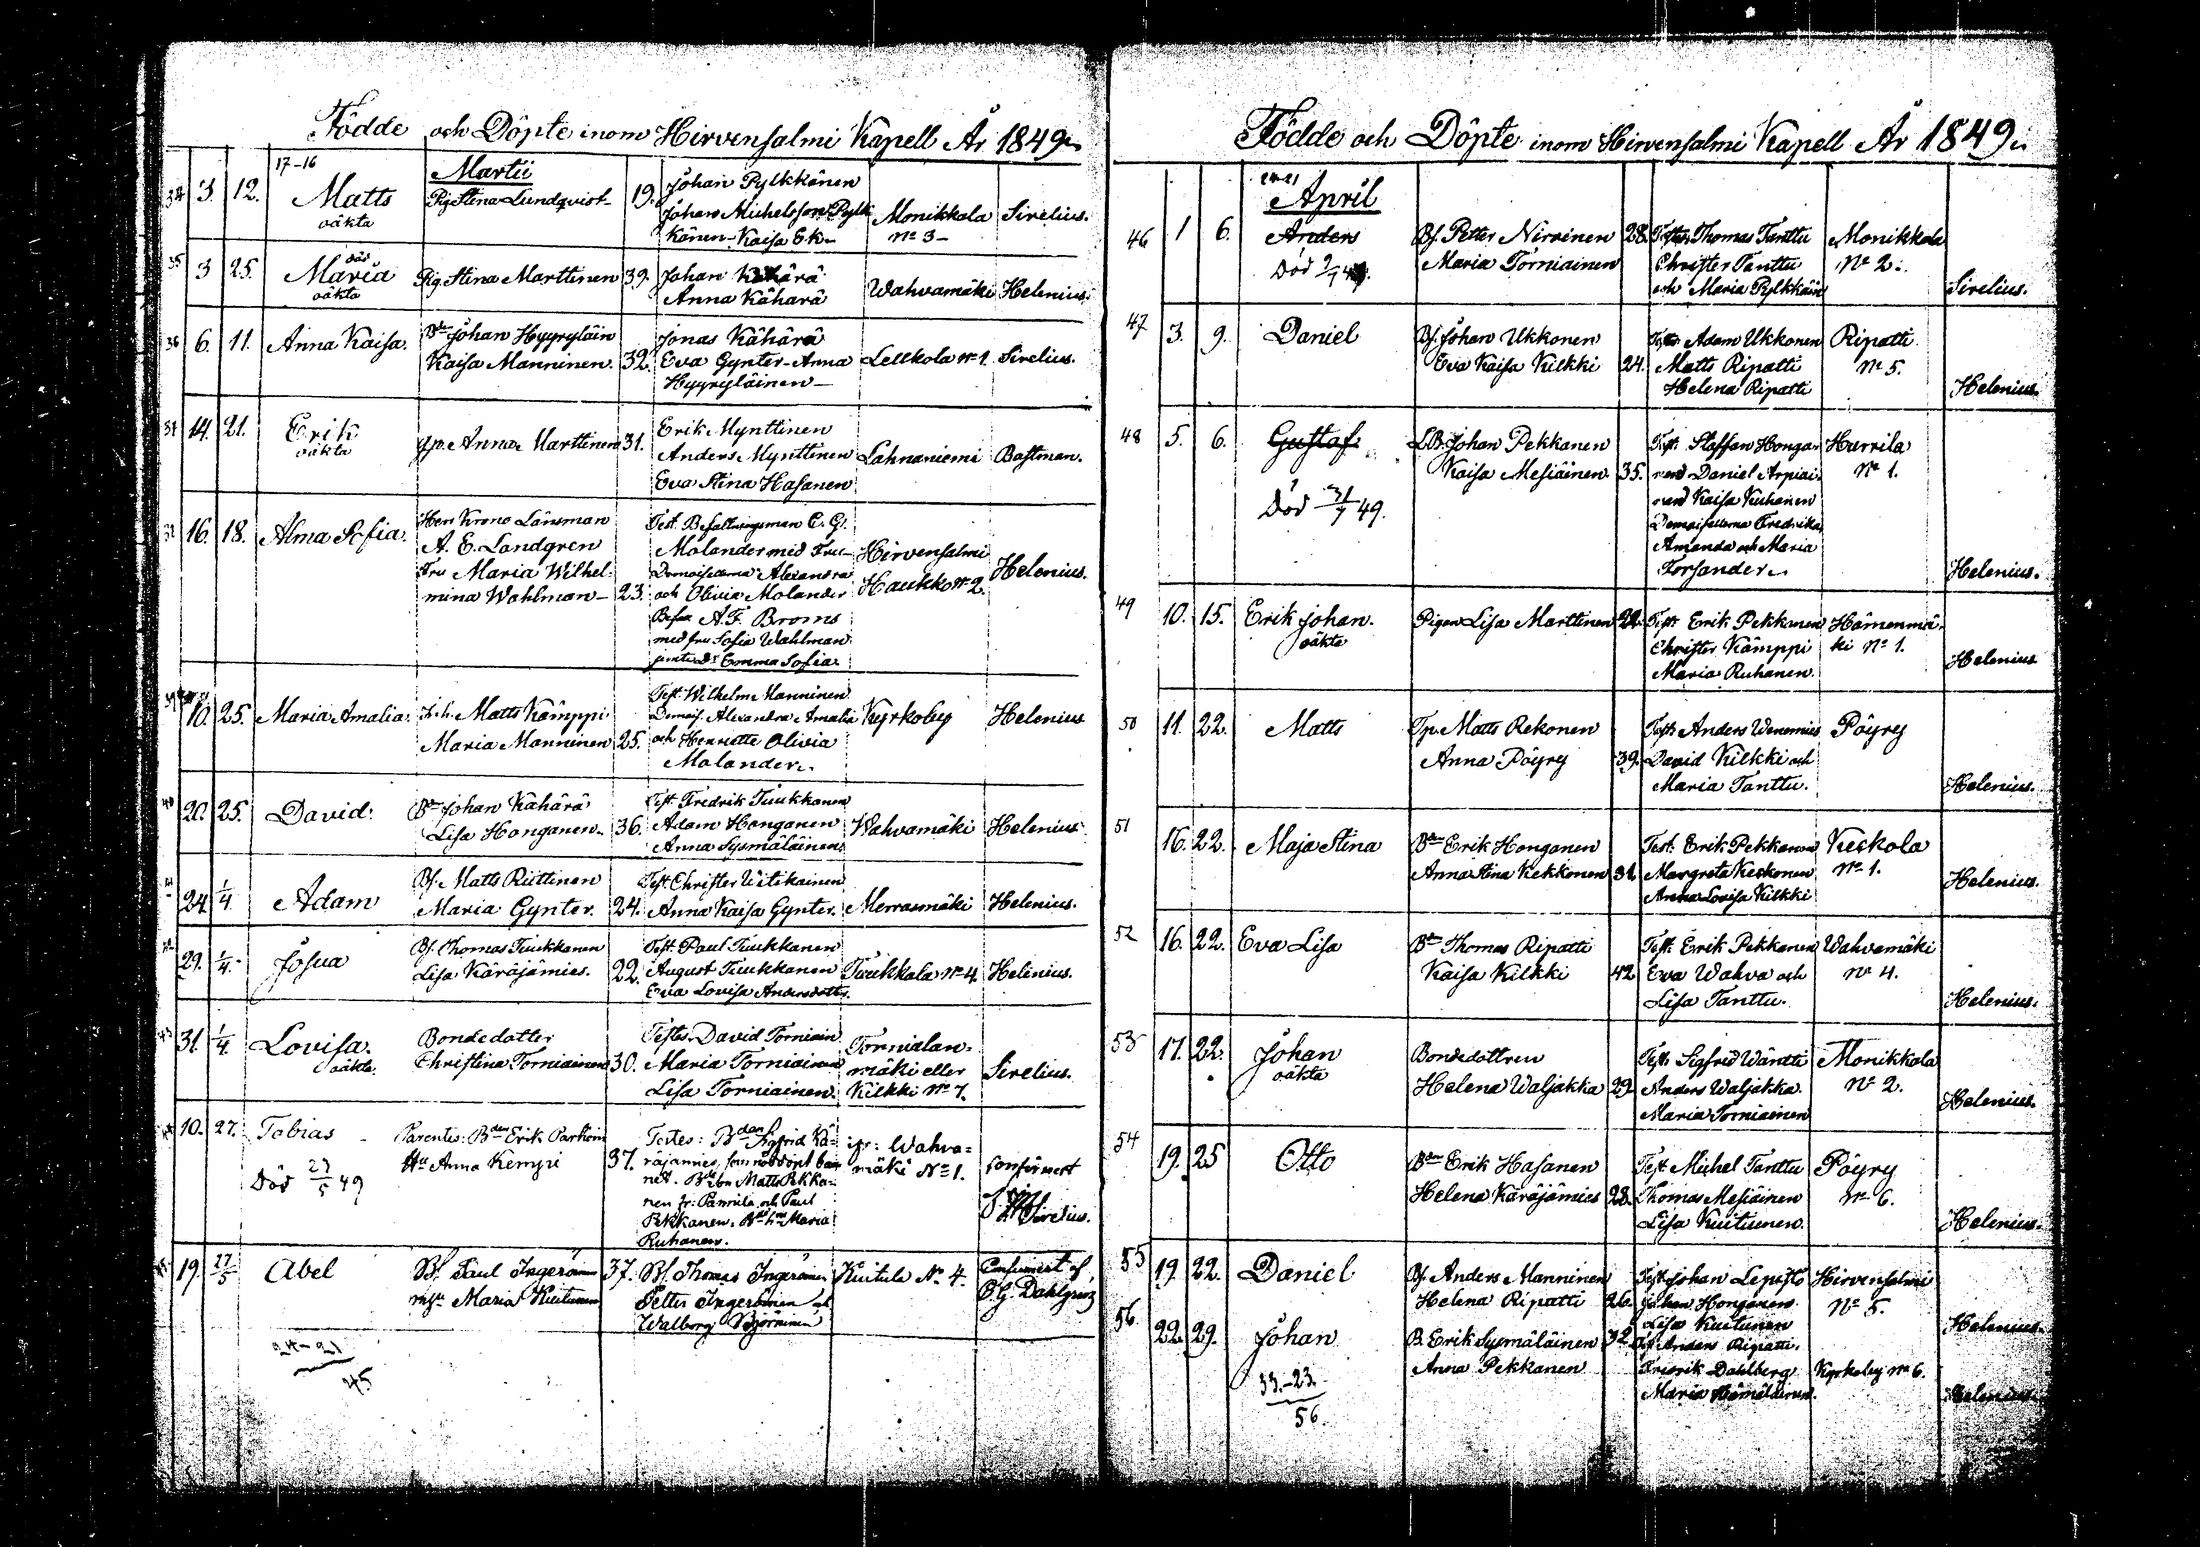 Födde och Döpte inom Hirvensalmi Kapell År 1849.
17-16
Martii
34 3. 12. Matts oäkta Pig Stina Lundqvist 19. Johan Pylkkänen
Johan Michelsson Pylk Monikkala Sirelius.
känen - Kaisa Ek No 3
35 3 25. död Maria oäkta Pig. Stina Marttinen 39. Johan Kähärä
Anna Kähärä Wahvamäki Helenius.
36 6. 11. Anna Kaisa. Bde Johan Hyyryläin Jonas Kähärä
Kaisa Manninen. 32. Eva Gynter - Anna Lellkola No 1. Sirelius.
Hyyryläinen
37 14. 21. Erik oäkta Anna Marttinen 31. Erik Mynttinen
Anders Mynttinen Lahnaniemi Bastman.
Eva Stina Hasanen
16. 18. Alma Sofia. Herr Krono Länsman Test. Befallningsman C. G.
A. E. Landgren Molander med Fru Hirvensalmi
Fru Maria Wilhel- Demoisellerna Alexandra Haukko No 2. Helenius.
mina Wahlman 23. och Olivia Molander
A. F. Broms
med fru Sofia Wahlman
Emma Sofia.
10. 25. Maria Amalia Matts Kämppi Test. Wilhelm Manninen
Demois. Alexandra Amalia Kyrkoby Helenius
Maria Manninen 25. och Henriette Olivia
Molander.
20. 25. David Bde Johan Kähärä Test. Fredrik Tuukkanen
Lisa Honganen 36. Adam Honganen Wahvamäki Helenius
Anna Sysmäläinen
24. 1/4 Adam Bs. Matts Ruttinen Test. Christer Uitikainen
Maria Gynter. 24. Anna Kaisa Gynter. Merrasmäki Helenius.
29. 1/4. Josua Bs. Thomas Tuukkanen Test. Paul Tuukkanen
Lisa Käräjämies. 22. August Tuukkanen Tuukkala No 4. Helenius.
Eva Lovisa Andersdotts.
31. 1/4. Lovisa. oäkta. Bondedotter Testes. David Torniain
Christina Torniainen 30. Maria Torniainen Tornialan-
mäki eller Sirelius.
Lisa Torniainen. Kilkki No 7.
10. 27. Tobias Parentes: Bden Erik Parkoin Testes: Bdan Sigfrid Kä-
Död 29/5 49 Hu Anna Kemppi 37. räjämies, som nöddöpt bar
net. Matts Pekka- mäki No 1. Confirmert
nen och Paul
Pekkanen. Maria Sirelius.
Ruhanen.
19. 27/5 Abel Bs. Paul Ingeröinen 37. Bs. Thomas Ingeröinen Kuitula No 4. Confirmert af
Maria Kuitunen Petter Ingeröinen O. G. Dahlgren
Walborg Björninen
24-21
45
Födde och Döpte inom Hirvensalmi Kapell År 1849.
24-21
April
46 1 6. Anders Bs. Petter Nirvinen 28. Testes Thomas Tanttu Monikkala
Död 9/4 49 Maria Torniainen Christer Tanttu No 2.
och Maria Pylkkäin Sirelius.
47 3. 9. Daniel Bs. Johan Ukkonen Testes Adam Ukkonen Ripatti
Eva Kaisa Kilkki 24. Matts Ripatti No 5.
Helena Ripatti Helenius.
48 5. 6. Gustaf Johan Pekkanen Test. Staffan Honga- Hurrila
Kaisa Mesiäinen 35. nen Daniel Arpiai- No 1.
Död 31/7 49. nen Kaisa Kuhanen
Demoisellerna Fredrika
Amanda och Maria
Forsander. Helenius.
49 10. 15. Erik Johan. oäkta Pigan Lisa Marttinen 22. Test. Erik Pekkanen Hämenmä-
Christer Kämppi ki No 1.
Maria Ruhanen. Helenius
50 11. 22. Matts Tp. Matts Rekonen Test. Anders Wenemies Pöyry
Anna Pöyry 39. David Kilkki och
Maria Tanttu. Helenius.
51 16. 22. Maja Stina Bde Erik Honganen Test. Erik Pekkanen Keskola
Anna Stina Kekkonen 31. Margreta Keskonen No 1.
Anna Lovisa Kilkki Helenius.
52 16. 22. Eva Lisa Bde Thomas Ripatti Test. Erik Pekkanen Wahvamäki
Kaisa Kilkki 42 Eva Wahva och No 4.
Lisa Tanttu. Helenius.
53 17. 22. Johan oäkta Bondedottren Test. Sigfrid Wäntti Monikkala
Helena Waljakka 29. Anders Waljakka No 2.
Maria Torniainen Helenius.
54 19. 25 Otto Bde Erik Hasanen Test. Michel Tanttu Pöyry
Helena Käräjämies 28. Thomas Mesiäinen No 6.
Lisa Kuitunen. Helenius.
55 19. 22. Daniel Bs. Anders Manninen Test. Johan Lepistö Hirvensalmi
Helena Ripatti 26. Johan Honganen No 5.
Lisa Kuitunen Helenius.
56. 22. 29. Johan B. Erik Sysmäläinen 32 Anders Ripatti.
Anna Pekkanen Fredrik Dahlberg Kyrkoby No 6.
Maria Hämäläinen. Helenius.
33.-23.
56.